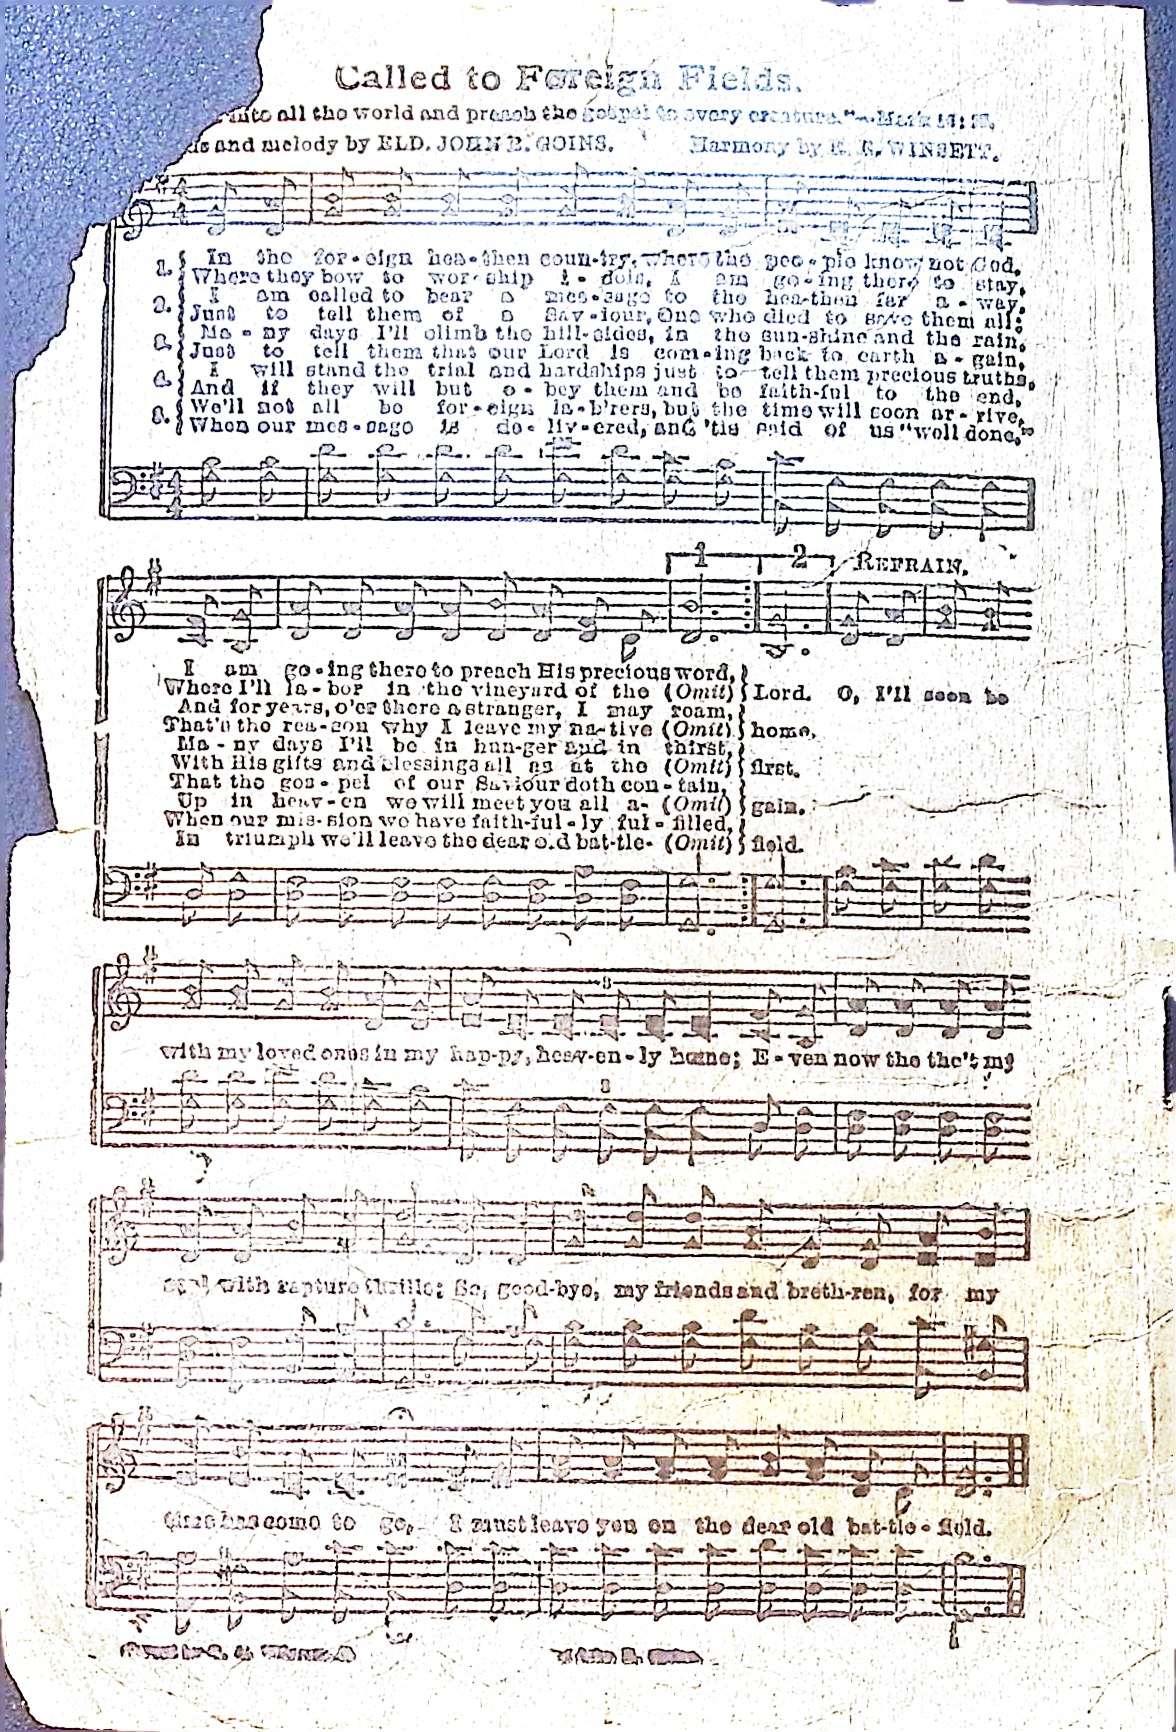 Called to Foreign Fields.
into all the world and preach the gospel to every creature."—Mark 16: 15.
and melody by ELD. JOHN E. GOINS. Harmony by R. E. WINSETT.
1. In the for-eign hea-then coun-try, where the peo-ple know not God,
Where they bow to wor-ship i-dols, I am go-ing there to stay,
2. I am called to bear a mes-sage to the hea-then far a-way,
Just to tell them of a Sav-iour, One who died to save them all;
3. Ma-ny days I'll climb the hill-sides, in the sun-shine and the rain,
Just to tell them that our Lord is com-ing back to earth a-gain,
4. I will stand the trial and hardships just to tell them precious truths,
And if they will but o-bey them and be faith-ful to the end,
5. We'll not all be for-eign la-b'rers, but the time will soon ar-rive,
When our mes-sage is de-liv-ered, and 'tis said of us "well done,"
1 2 REFRAIN.
I am go-ing there to preach His precious word,
Where I'll la-bor in the vineyard of the (Omit) Lord. O, I'll soon be
And for years, o'er there a stranger, I may roam,
That's the rea-son why I leave my na-tive (Omit) home.
Ma-ny days I'll be in hun-ger and in thirst,
With His gifts and blessings all as at the (Omit) first.
That the gos-pel of our Saviour doth con-tain,
Up in heav-en we will meet you all a- (Omit) gain.
When our mis-sion we have faith-ful-ly ful-filled,
In triumph we'll leave the dear old bat-tle- (Omit) field.
3
with my loved ones in my hap-py, heav-en-ly home; E-ven now the tho't my
3
soul with rapture thrills; So, good-bye, my friends and breth-ren, for my
time has come to go, I must leave you on the dear old bat-tle-field.